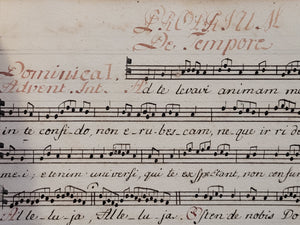 PROPRIUM
De Tempore
Dominica I.
Advent. Int. Ad te levavi animam me
in te confido, non e ru bes cam, ne que ir ri de
me i, etenim universi, qui te exspectant, non confun
Al le lu ja, Al le lu ja. Osten de nobis Do